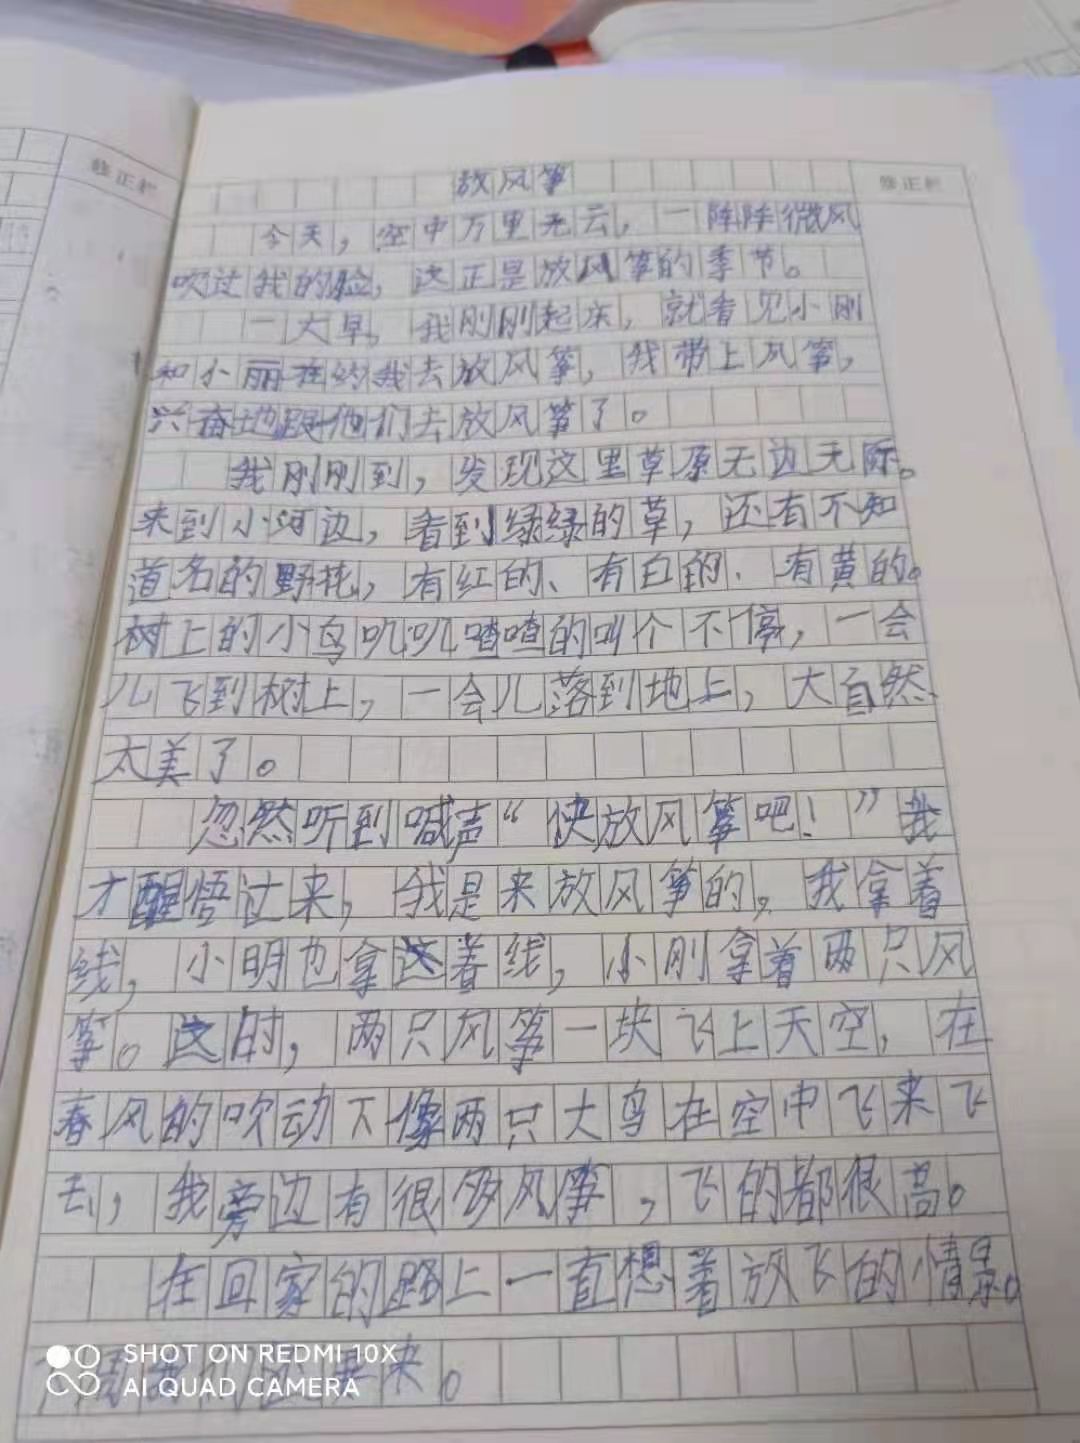 修正栏
修正栏
放风筝
今天，空中万里无云，一阵阵微风
吹过我的脸，这正是放风筝的季节。
一大早，我刚刚起床，就看见小刚
和小丽在约我去放风筝，我带上风筝，
兴奋地跟他们去放风筝了。
我刚刚到，发现这里草原无边无际。
来到小河边，看到绿绿的草，还有不知
道名的野花，有红的、有白的、有黄的。
树上的小鸟叽叽喳喳的叫个不停，一会
儿飞到树上，一会儿落到地上，大自然
太美了。
忽然听到喊声“快放风筝吧！”我
才醒悟过来，我是来放风筝的，我拿着
线，小明也拿这着线，小刚拿着两只风
筝。这时，两只风筝一块飞上天空，在
春风的吹动下像两只大鸟在空中飞来飞
去，我旁边有很多风筝，飞的都很高。
在回家的路上一直想着放飞的情景。
来。
SHOT ON REDMI 10X
AI QUAD CAMERA